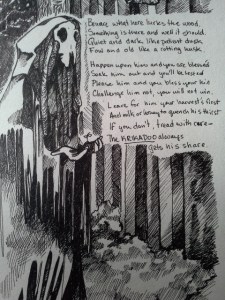 Beware what here lurks the wood,
Something is there and well it should.
Quiet and dark, like patient death,
Foul and old like a rotting husk.
Happen upon him and you are blessed
Seek him out and you'll be tested
Please him and you bless your lot
Challenge him not, you will not win.
Leave for him your harvest's first
And milk or honey to quench his thirst
If you don't, tread with care-
The KRKADOO always
gets his share.